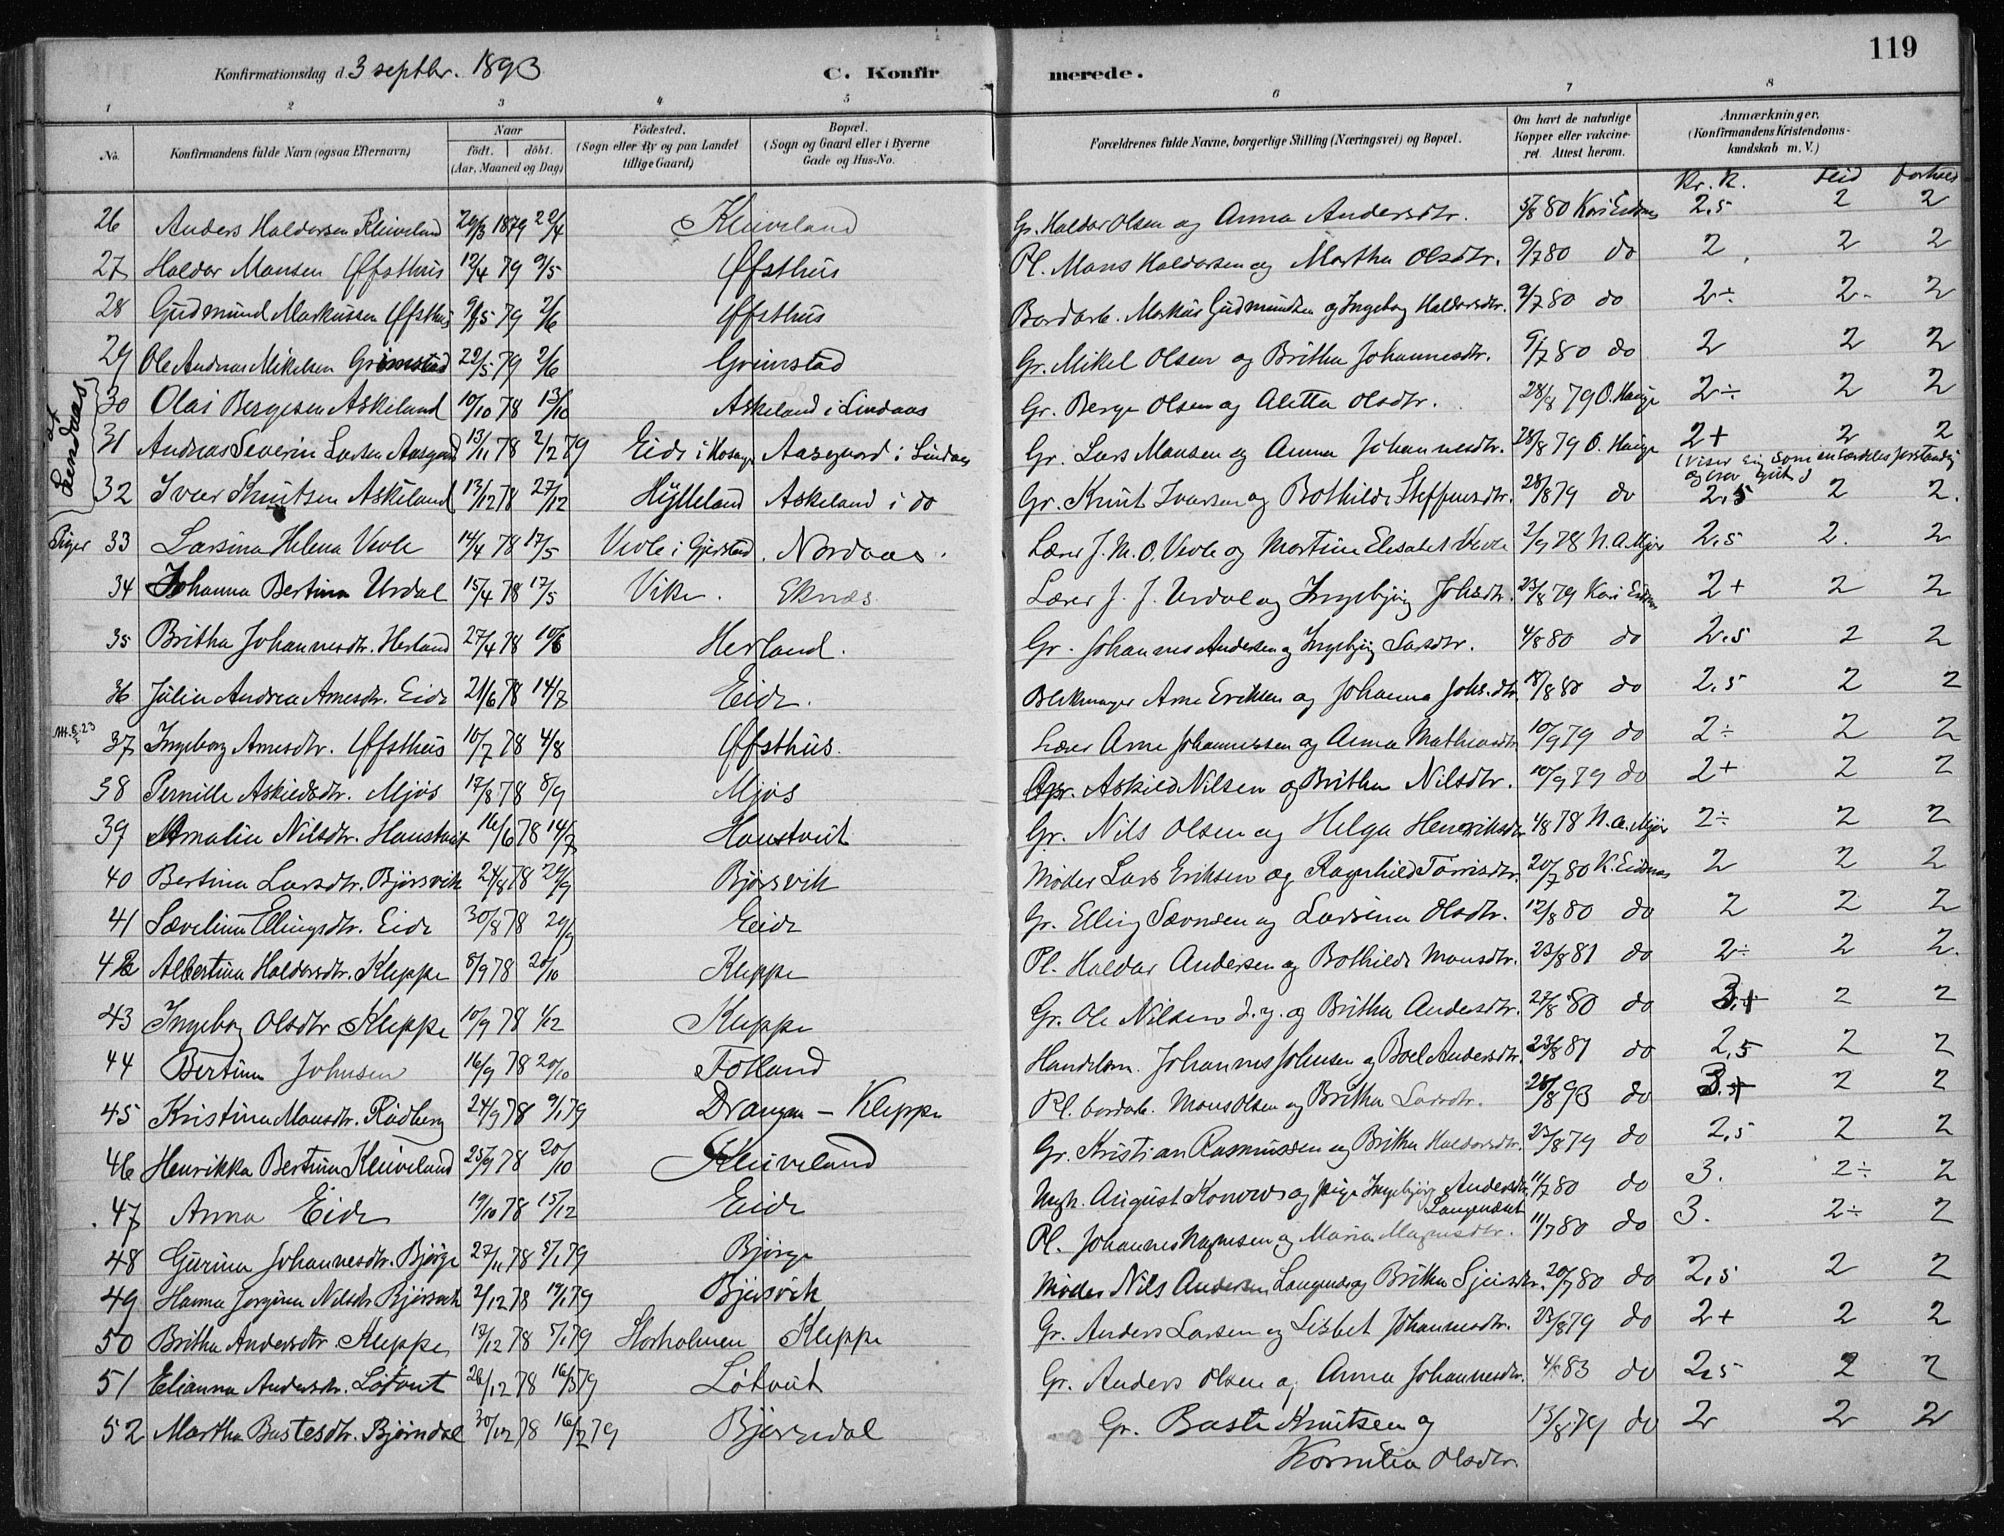 119
Konfirmationsdag d. 3 septbr. 1893 C. Konfir merede.
1 2 3 4 5 6 7 8
No. Konfirmandens fulde Navn (ogsaa Efternavn) Naar født. døbt. (Aar, Maaned og Dag) Fødested. (Sogn eller By og paa Landet tillige Gaard) Bopæl. (Sogn og Gaard eller i Byerne Gade og Hus-No. Forældrenes fulde Navne, borgerlige Stilling (Næringsvei) og Bopæl. Om havt de naturlige Kopper eller vakcineret. Attest herom. Anmærkninger. (Konfirmandens Kristendomskundskab m. V.)
Kr. K. flid forhold
26 Anders Haldorsen Kleiveland 29/3 1879 22/4 Kleiveland Gr. Haldor Olsen og Anna Andersdtr. 5/8 80 Kari Eidsnes 2,5 2 2
27 Haldor Monsen Øfsthus 12/4 79 9/5 Øfsthus Pl. Mons Haldorsen og Martha Olsdtr. 9/7 80 do 2 2 2
28 Gudmund Markussen Øfsthus 9/5 79 2/6 Øfsthus Bordarb. Markus Gudmundsen og Ingebog Haldorsdtr. 9/7 80 do 2÷ 2 2
29 Ole Andreas Mikelsen Grimstad 22/5 79 2/6 Grimstad Gr. Mikel Olsen og Britha Johannesdtr. 9/7 80 do 2 2 2
af Lindaas
30 Olai Bergesen Askeland 10/10 78 13/10 Askeland i Lindaas Gr. Berge Olsen og Aletta Olsdtr. 28/8 79 O. Hauge 2÷ 2 2
31 Andreas Severin Larsen Aasgaard 13/11 78 2/2 79 Eide i Hosanger Aasgaard i Lindaas Gr. Lars Monsen og Anna Johannesdtr. 28/8 79 O. Hauge 2+ 2 2
(viser sig som en særdeles forstandig og brav gut)
32 Ivar Knutsen Askeland 13/12 78 27/12 Hylleland Askeland i do Gr. Knut Ivarsen og Bothilde Steffensdtr. 28/8 79 do 2,5 2 2.
Piger 33 Larsina Helena Vevle 14/4 78 17/5 Vevle i Gjerstad Nordaas. Lærer J. M. O. Vevle og Martine Elisabet Vevle 2/9 78 N. A. Mjøs 2,5 2. 2
34 Johanna Bertina Urdal 15/4 78 17/5 Vike. Eknæs Lærer J. J. Urdal og Ingebjørg Johsdtr. 23/8 79 Kari Eidsnes 2+ 2 2
35 Britha Johannesdtr. Herland 27/4 78 10/6 Herland. Gr. Johannes Andersen og Ingebjørg Larsdtr. 4/8 80 do 2,5 2 2
36 Julia Andrea Arnesdtr. Eide 21/6 78 14/7 Eide. Blikmager Arne Eriksen og Johanna Johs.dtr. 18/8 80 do 2,5 2 2
37 Ingeborg Arnesdtr. Øfsthus 10/7 78 4/8 Øfsthus. Lærer Arne Johannessen og Anna Mathiasdtr. 10/9 79 do 2÷ 2 2
38 Pernille Askildsdtr. Mjøs 17/8 78 8/9 Mjøs Gr. Askild Nilsen og Britha Nilsdtr. 10/9 79 do 2+ 2 2
39 Amalia Nilsdtr. Haustveit 16/6 78 14/7 Haustveit Gr. Nils Olsen og Helga Henriksdtr. 4/8 78 N. A. Mjøs 2÷ 2 2
40 Bertina Larsdtr. Bjørsvik 24/8 78 29/9 Bjørsvik Møller Lars Eriksen og Ragnhild Torrisdtr. 20/7 80 K. Eidsnæs 2 2 2
41 Sævelina Ellingsdtr. Eide 30/8 78 29/9 Eide Gr. Elling Sævnsen og Larsina Olsdtr. 12/8 80 do 2 2 2
42 Albertina Haldorsdtr. Kleppe 8/9 78 20/10 Kleppe Pl. Haldor Andersen og Bothilde Monsdtr. 23/8 81 do 2÷ 2 2.
43 Ingeborg Olsdtr Kleppe 10/9 78 1/12 Kleppe Gr. Ole Nilsen d. y. og Britha Andersdtr. 27/8 80 do 3+ 2 2
44 Bertina Johnsen 16/9 78 20/10 Fotland Handelsm. Johannes Johnsen og Boel Andersdtr. 23/8 81 do 2,5 2 2
45 Kristina Monsdtr. Rødberg 24/9 78 9/1 79 Drangen – Kleppe Pl. bordarb. Mons Olsen og Britha Larsdtr. 28/8 93 do 2 2
46 Henrikka Bertina Kleiveland 25/9 78 20/10 Kleiveland Gr. Kristian Rasmussen og Britha Haldorsdtr. 25/8 79 do 2,5 2 2
47 Anna Eide 19/10 78 15/12 Eide Ungk. August Konows og pige Ingebjørg Andersdtr. 11/7 80 do 3. 2÷ 2
48 Gurina Johannesdtr. Bjørge 27/11 78 5/1 79 Bjørge Pl. Johannes Magnesen og Maria Magnesdtr. 11/7 80 do 3. 2÷ 2
49 Hanna Jorgina Nilsdtr. Bjørsvik 2/12 78 19/1 79 Bjørsvik Møller Nils Andersen og Britha 20/7 80 do 2,5 2 2
50 Britha Andersdtr. Kleppe 17/12 78 5/1 79 Storholmen Kleppe Gr. Anders Larsen og Lisbet Johannesdtr. 25/8 79 do 2+ 2 2
51 Elianna Andersdtr. Løtveit 26/12 78 16/3 79 Løtveit Gr. Anders Olsen og Anna Johannesdtr. 83 do 2,5 2 2
52 Martha Bastesdtr. Bjørndal 30/12 78 16/2 79 Bjørndal Gr. Baste Knutsen og 13/8 79 do 2 2 2
Kornelia Olsdtr.